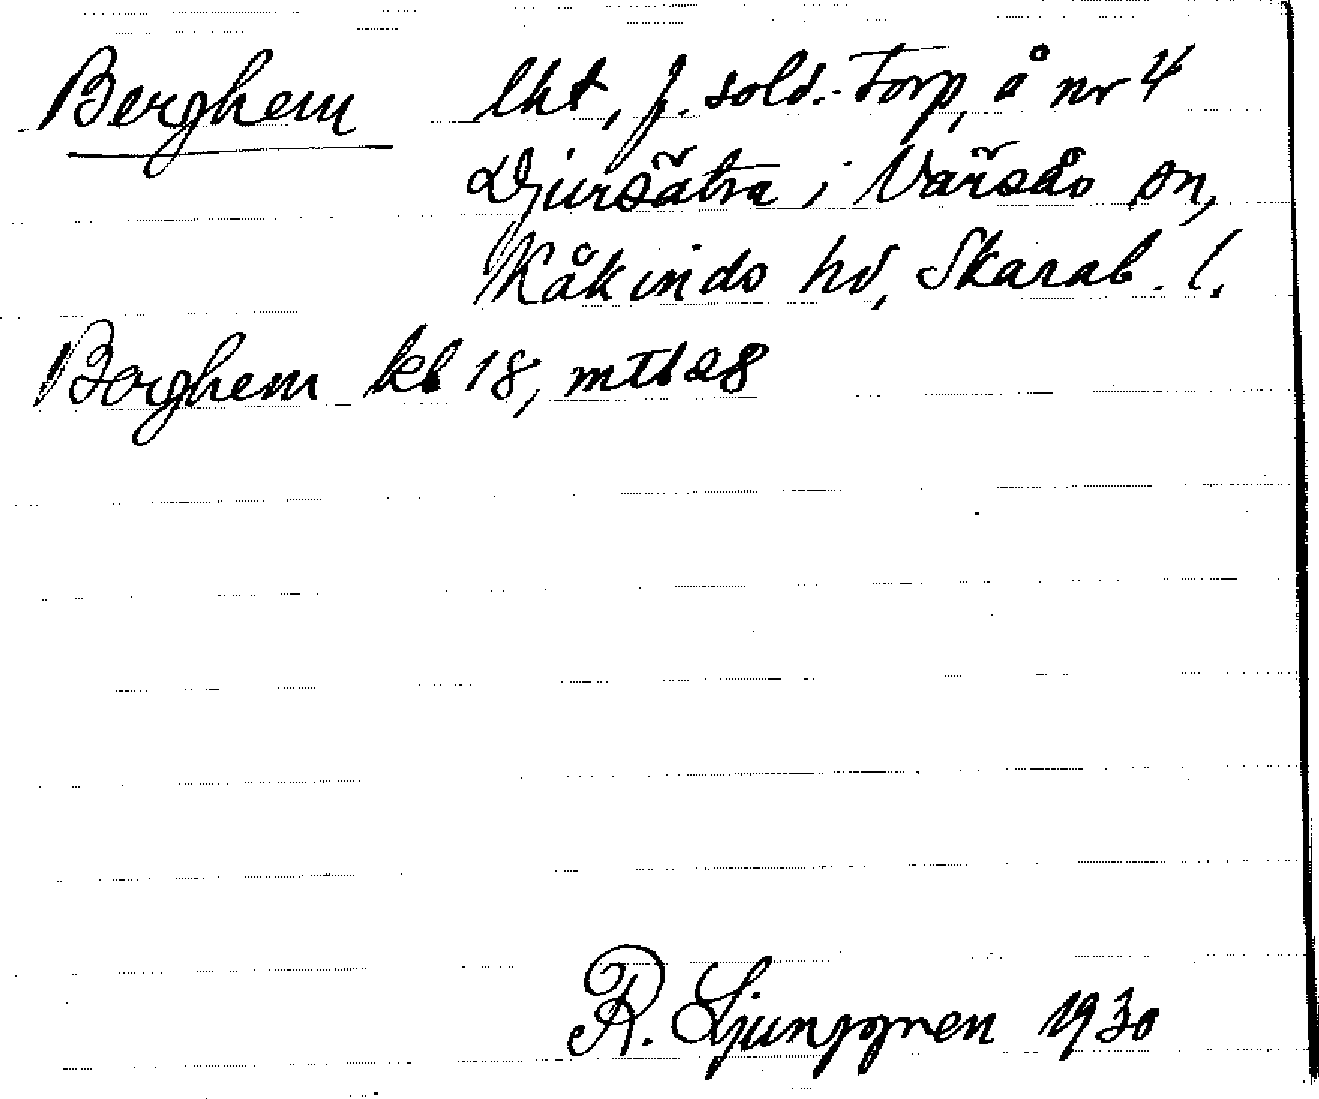 Berghem lht, f. sold.-torp, å nr 4
Djursätra i Varsås sn,
Kåkinds hd, Skarab. l.
Berghem kb 18, mtl 28
R. Ljunggren 1930